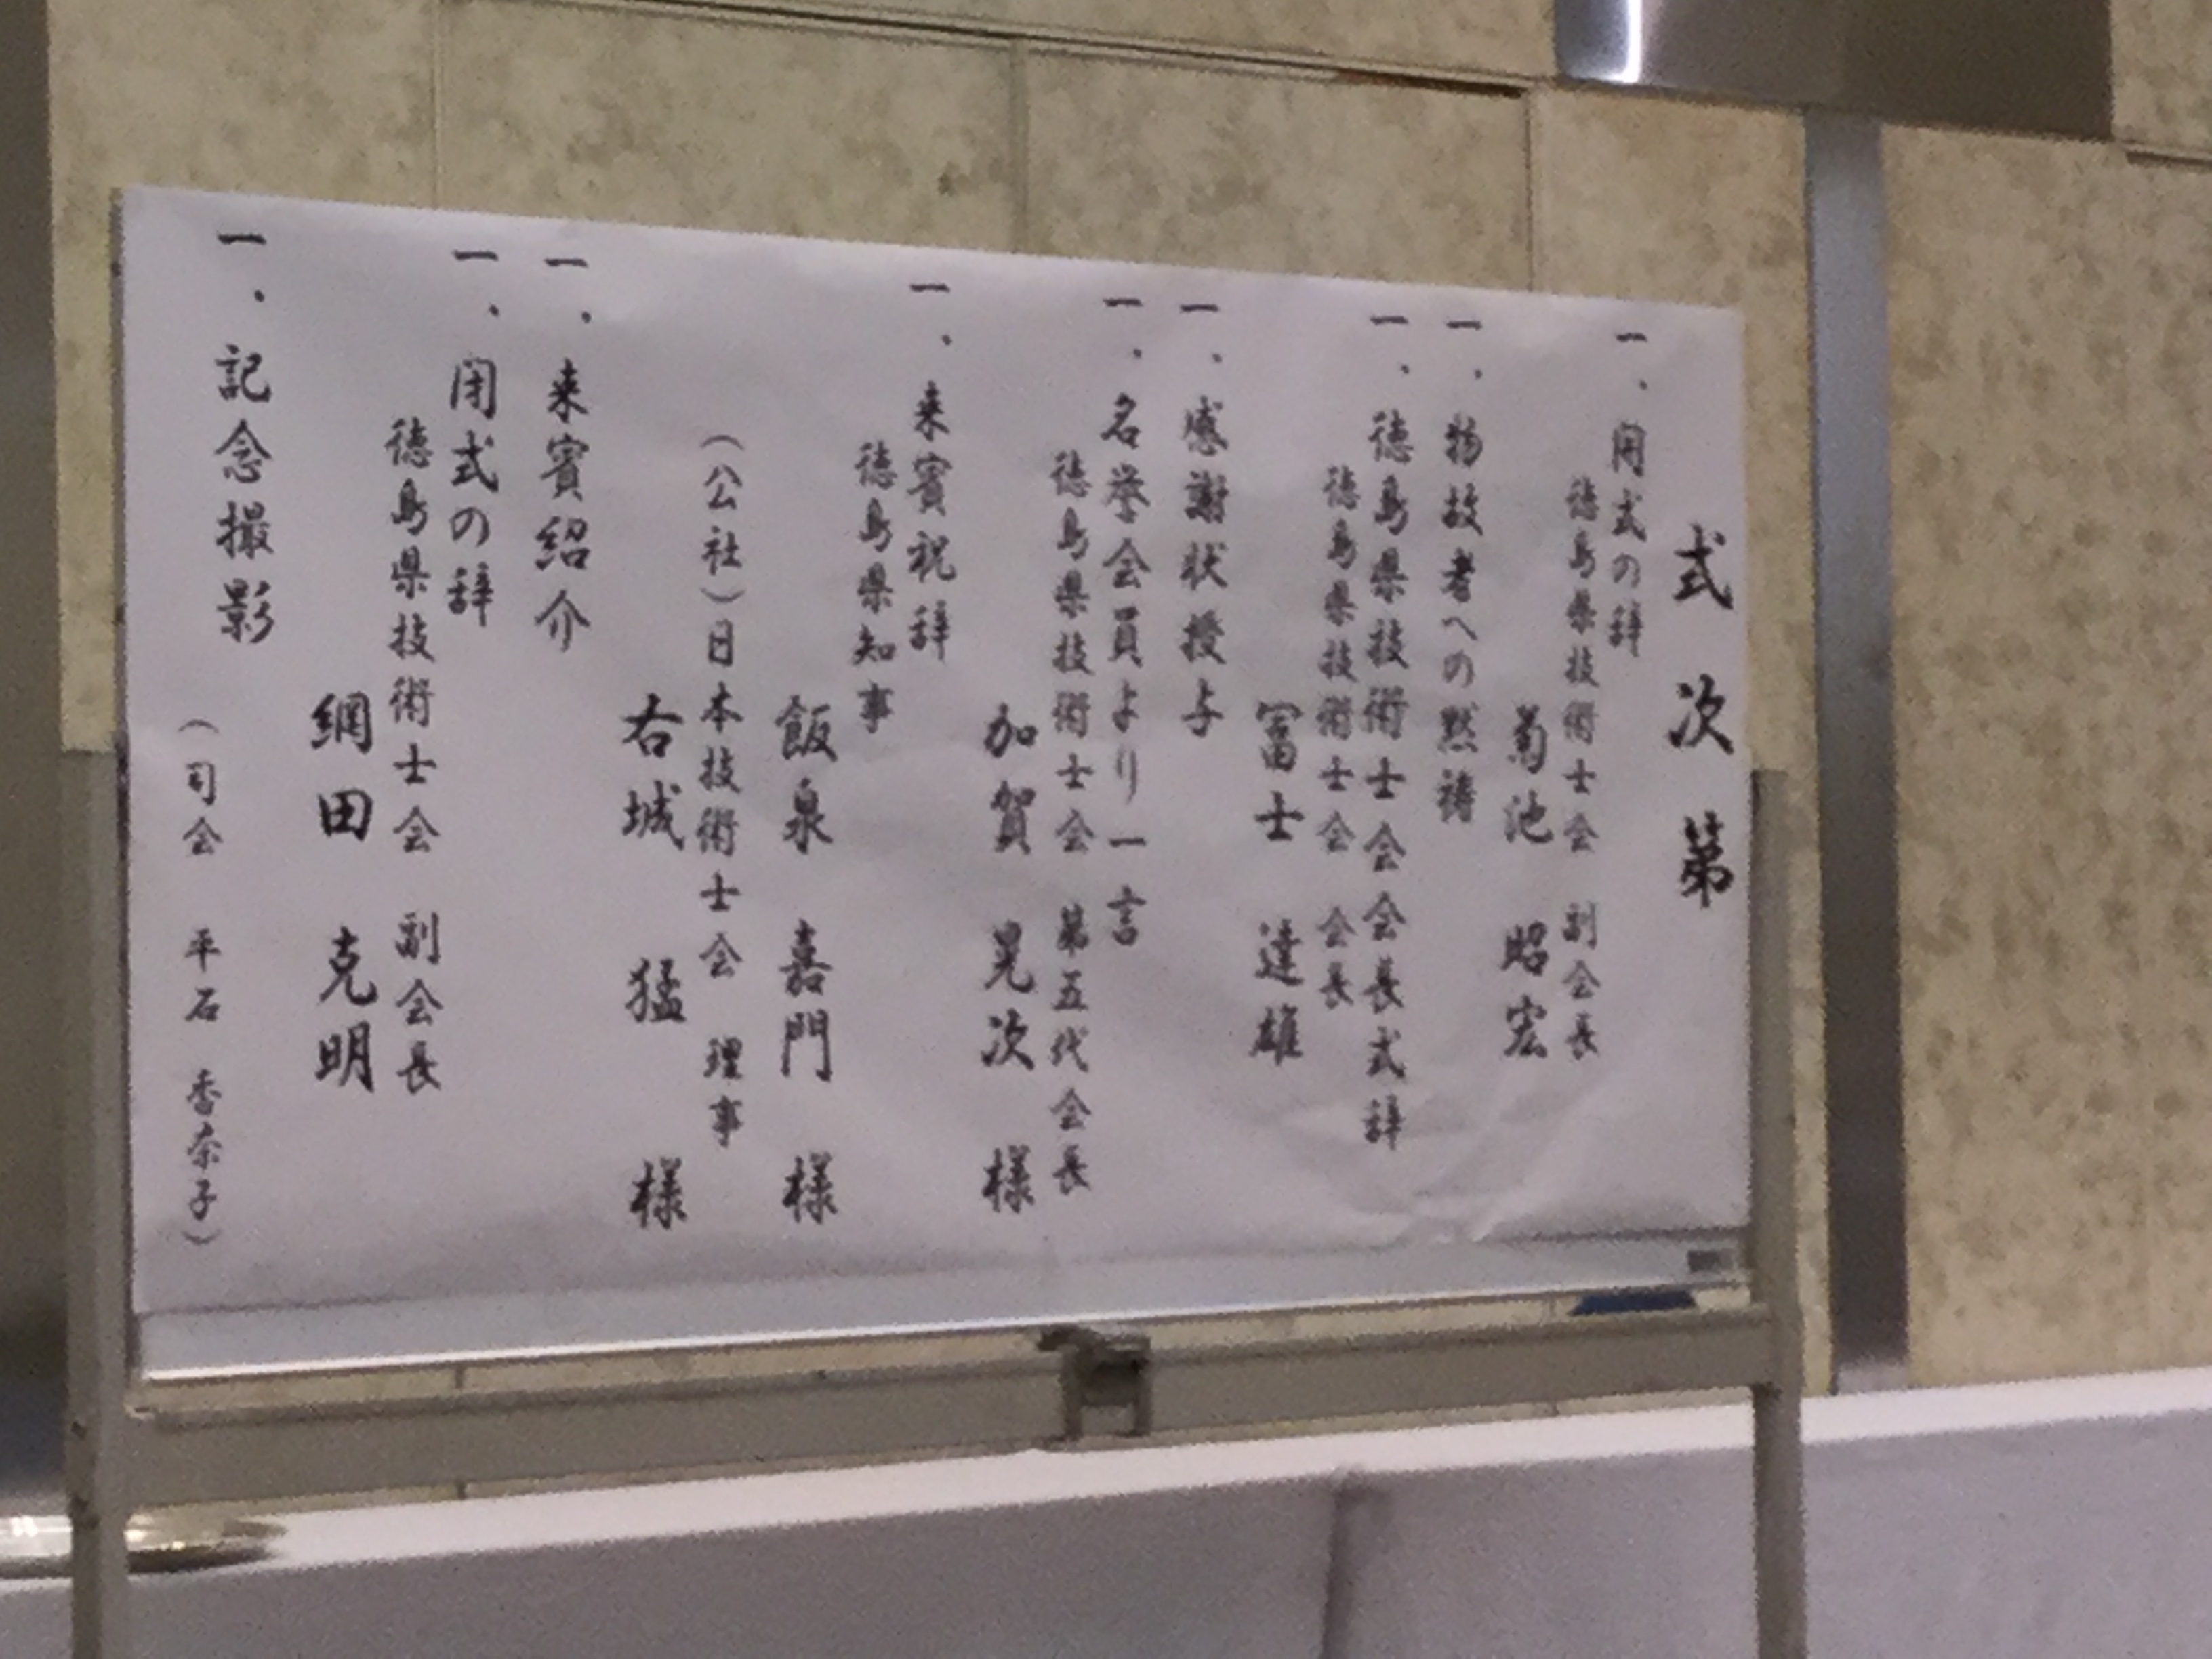 式次第
一、開式の辞
徳島県技術士会 副会長
菊池 昭宏
一、物故者への黙祷
一、徳島県技術士会会長式辞
徳島県技術士会 会長
冨士 達雄
一、感謝状授与
一、名誉会員より一言
徳島県技術士会 第五代会長
加賀 晃次 様
一、来賓祝辞
徳島県知事
飯泉 嘉門 様
(公社)日本技術士会 理事
右城 猛 様
一、来賓紹介
一、閉式の辞
徳島県技術士会 副会長
網田 克明
一、記念撮影
(司会 平石 香奈子)